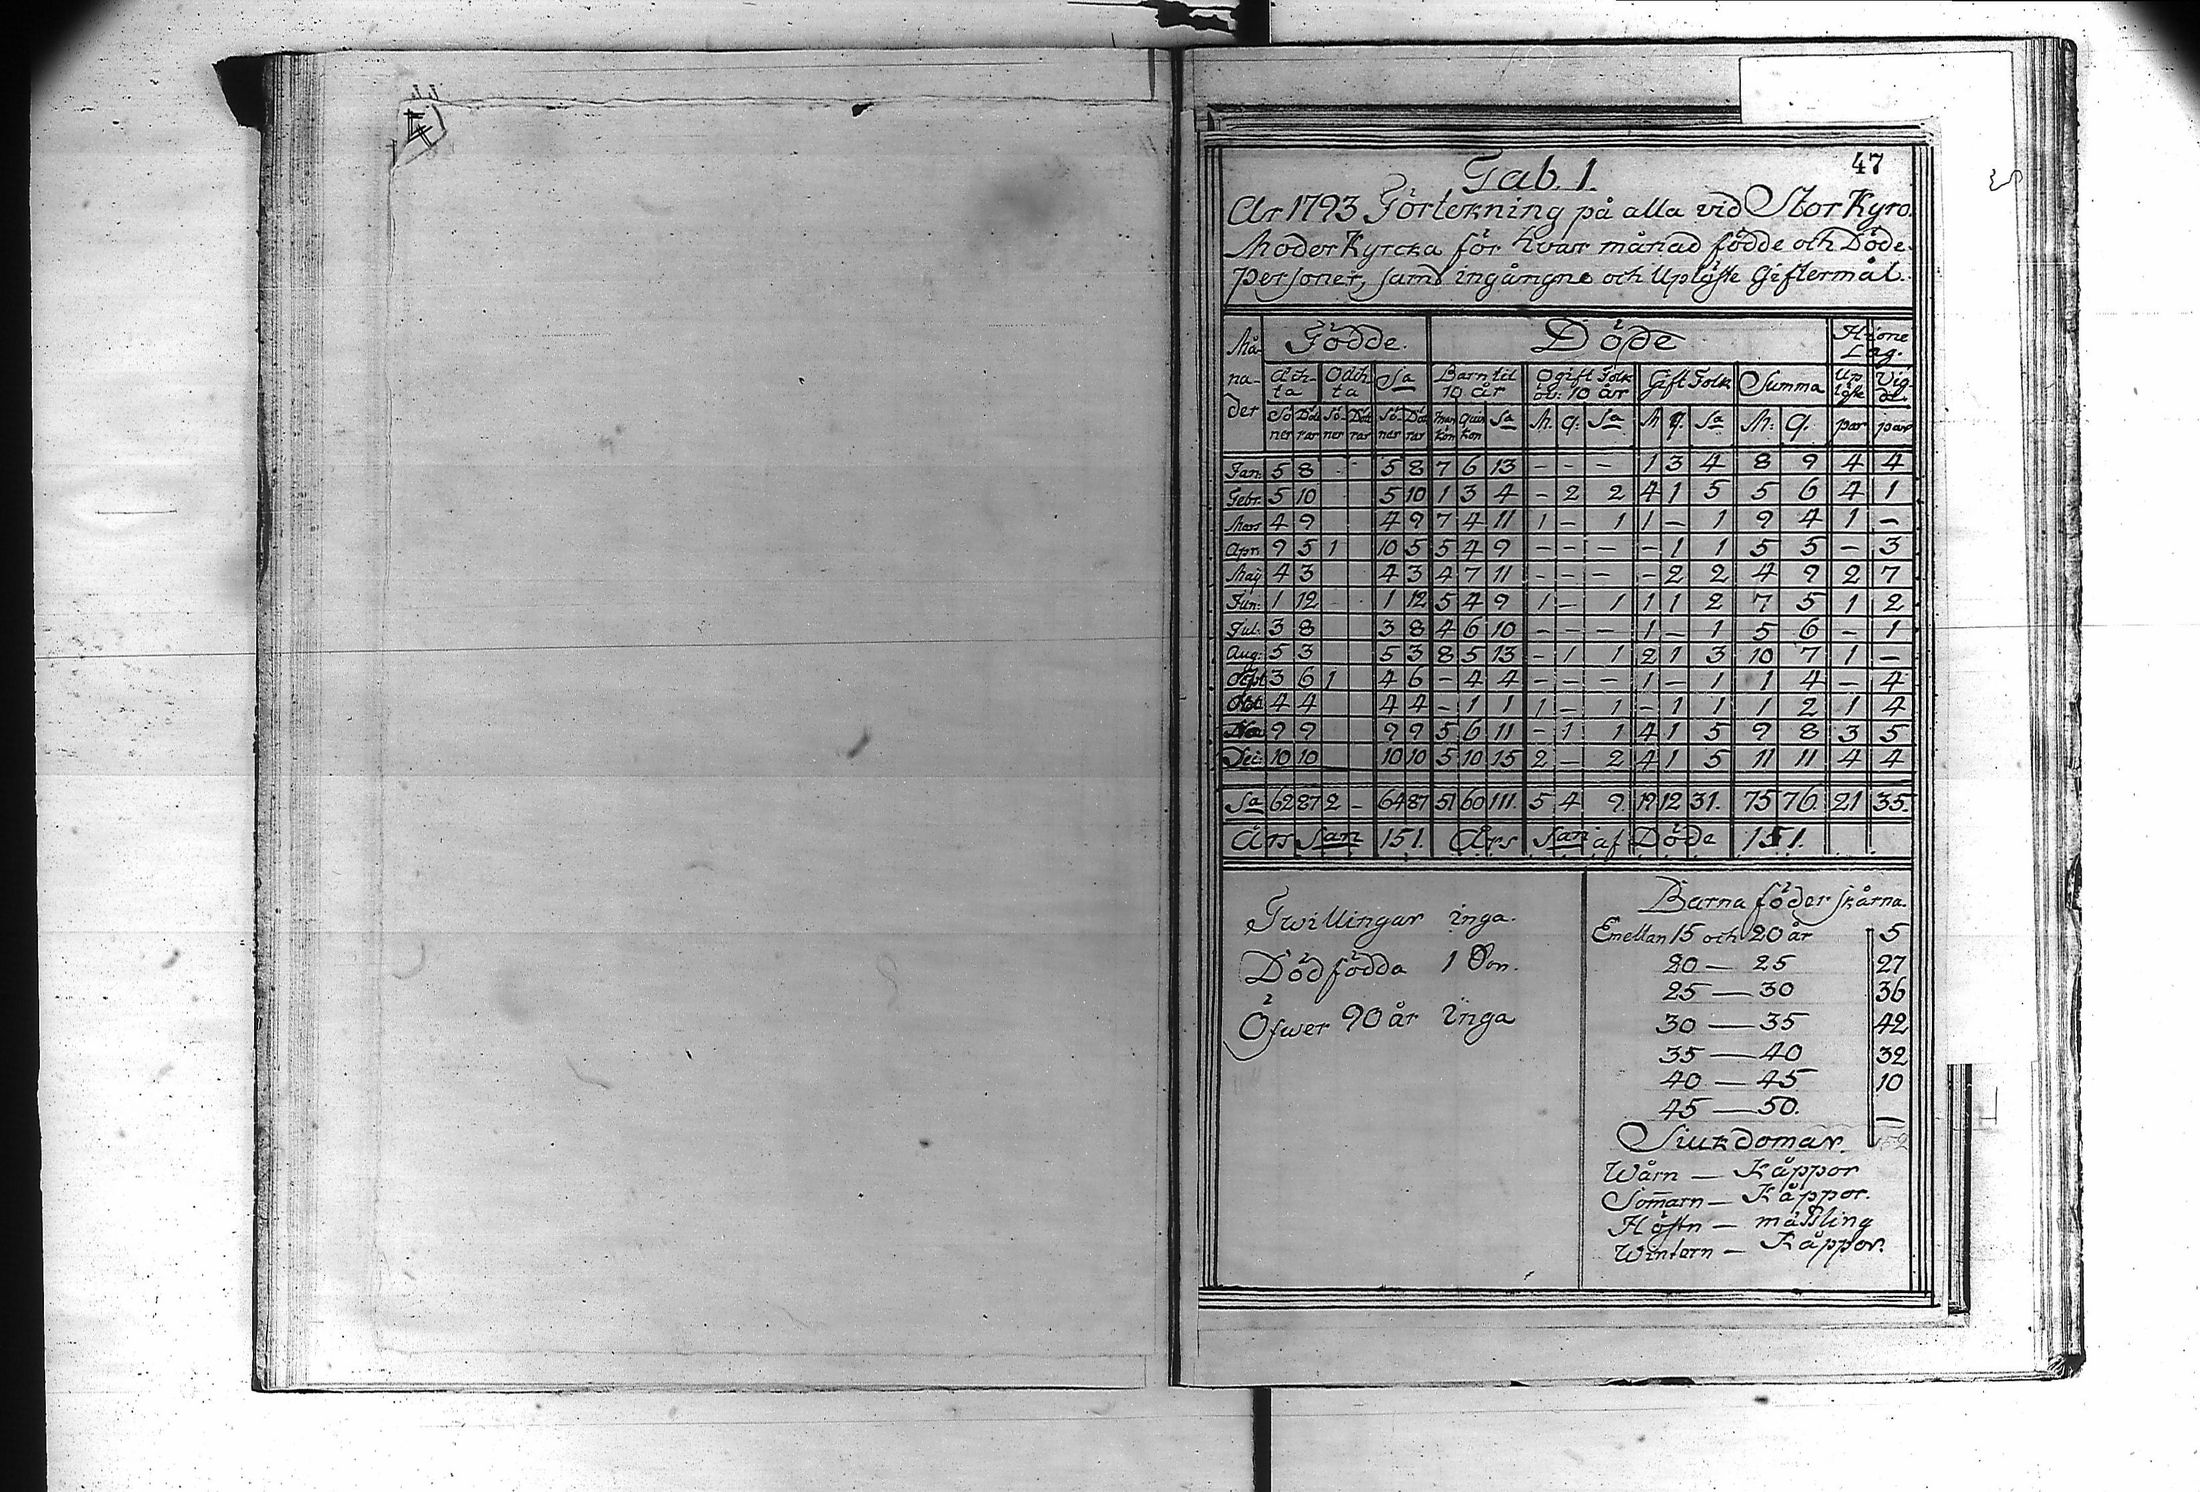 47
Tab. 1.
År 1793 Förtekning på alla vid Stor Kyro
Moder Kyrcka för hvar månad födde och Döde
Personer, samt ingångne och Uplöste Giftermål.
Må- Födde. Döde Hione Lag.
na- Äch- Oäch Sa Barn til Ogift Folk Gift Folk Summa Up Vig
ta ta 10 år öv: 10 år löste de.
der Sö Döt Sö- Dött Sö- Dött Man Quin Sa M. Q: Sa M Q. Sa M: Q. par par
ner rar ner rar ner rar kön kon
Jan: 5 8 5 8 7 6 13 - - - 1 3 4 8 9 4 4
Febr. 5 10 5 10 1 3 4 - 2 2 4 1 5 5 6 4 1
Mars 4 9 4 9 7 4 11 1 - 1 1 - 1 9 4 1 -
Apr. 9 5 1 10 5 5 4 9 - - - - 1 1 5 5 - 3
Maij 4 3 4 3 4 7 11 - - - - 2 2 4 9 2 7
Jun: 1 12 1 12 5 4 9 1 - 1 1 1 2 7 5 1 2
Jul: 3 8 3 8 4 6 10 - - - 1 - 1 5 6 - 1
Aug: 5 3 5 3 8 5 13 - 1 1 2 1 3 10 7 1 -
3 6 1 4 6 - 4 4 - - - 1 - 1 1 4 - 4
4 4 4 4 - 1 1 1 - 1 - 1 1 1 2 1 4
9 9 9 9 5 6 11 - 1 1 4 1 5 9 8 3 5
Dec: 10 10 10 10 5 10 15 2 - 2 4 1 5 11 11 4 4
Sa 62 87 2 - 64 87 51 60 111. 5 4 9. 19 12 31. 75 76. 21 35.
Års Sam 151. Års Sam af Döde 151.
Twillingar inga.
Dödfödda 1 Son.
Öfwer 90 år inga
Barnaföderskårna
Emellan 15 och 20 år 5
20 — 25 27
25 — 30 36
30 — 35 42
35 — 40 32
40 — 45 10
45 — 50. —
Siukdomar. 152
Wårn — Kåppor
Som̄arn — Kåppor.
Höstn — mäßling
Wintern — Kåppor.